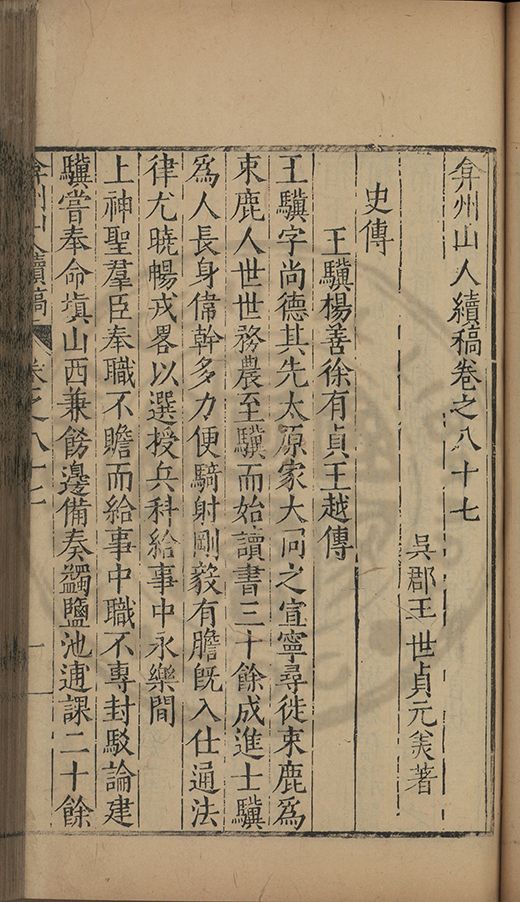 弇州山人續稿卷之八十七
吳郡王世貞元美著
史傳
王驥楊善徐有貞王越傳
王驥字尚德其先太原家大同之宣寧尋徙束鹿爲
束鹿人世世務農至驥而始讀書三十餘成進士驥
爲人長身偉幹多力便騎射剛毅有膽旣入仕通法
律尤曉暢戎畧以選授兵科給事中永樂間
上神聖羣臣奉職不贍而給事中職不專封駁論建
驥嘗奉命塡山西兼餝邊備奏蠲鹽池逋課二十餘
弇州山人續稿 卷之八十七 一